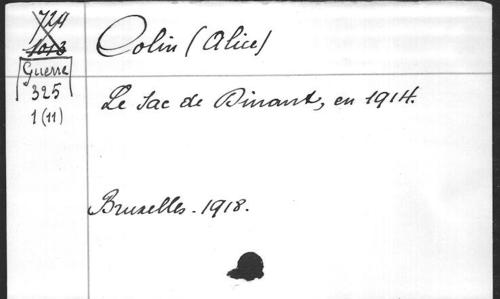 724
1013
Colin (Alice)
Guerre
325
1 (11)
Le Sac de Dinant, en 1914.
Bruxelles. 1918.